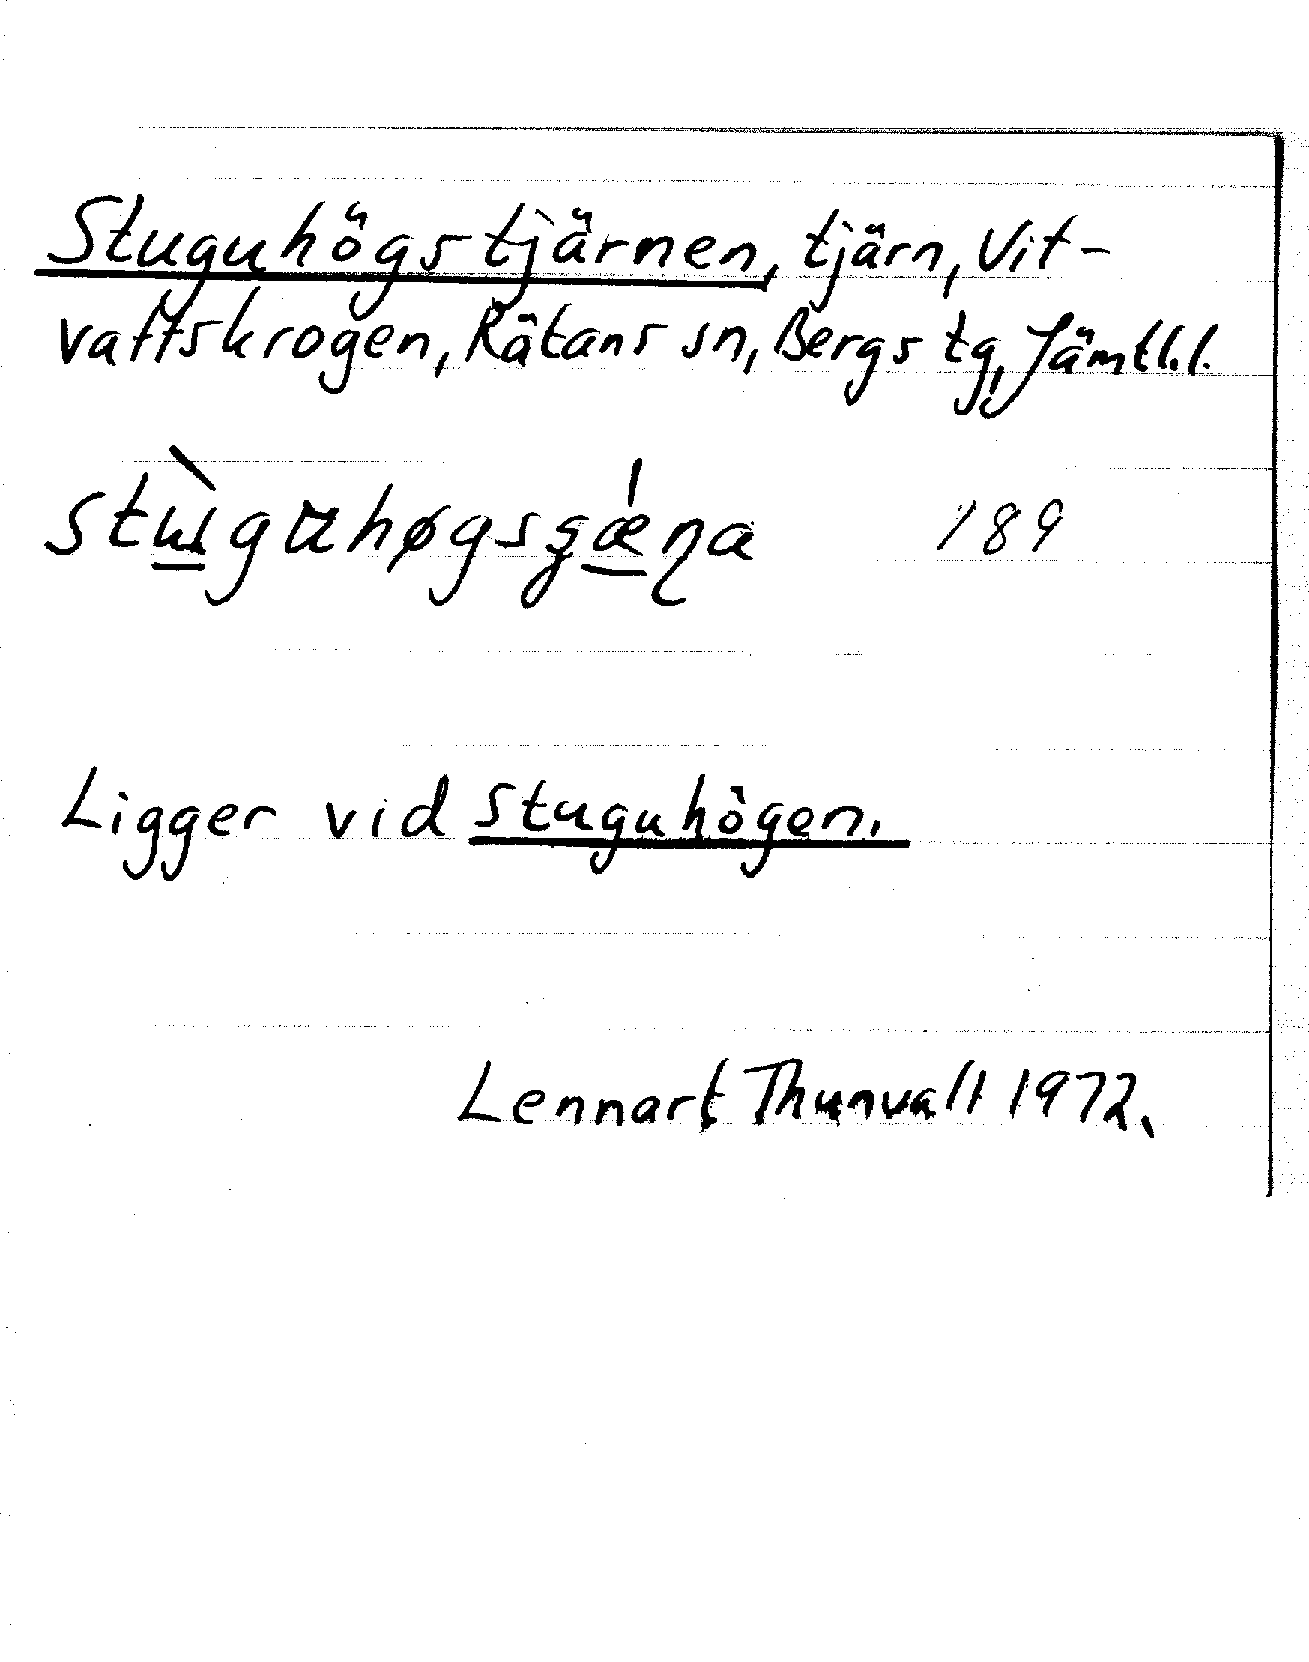 Stuguhögstjärnen, tjärn, Vit-
vattskrogen, Rätans sn, Bergs tg, Jämtl. l.
189
Ligger vid Stuguhögen.
Lennart Thunvall 1972.